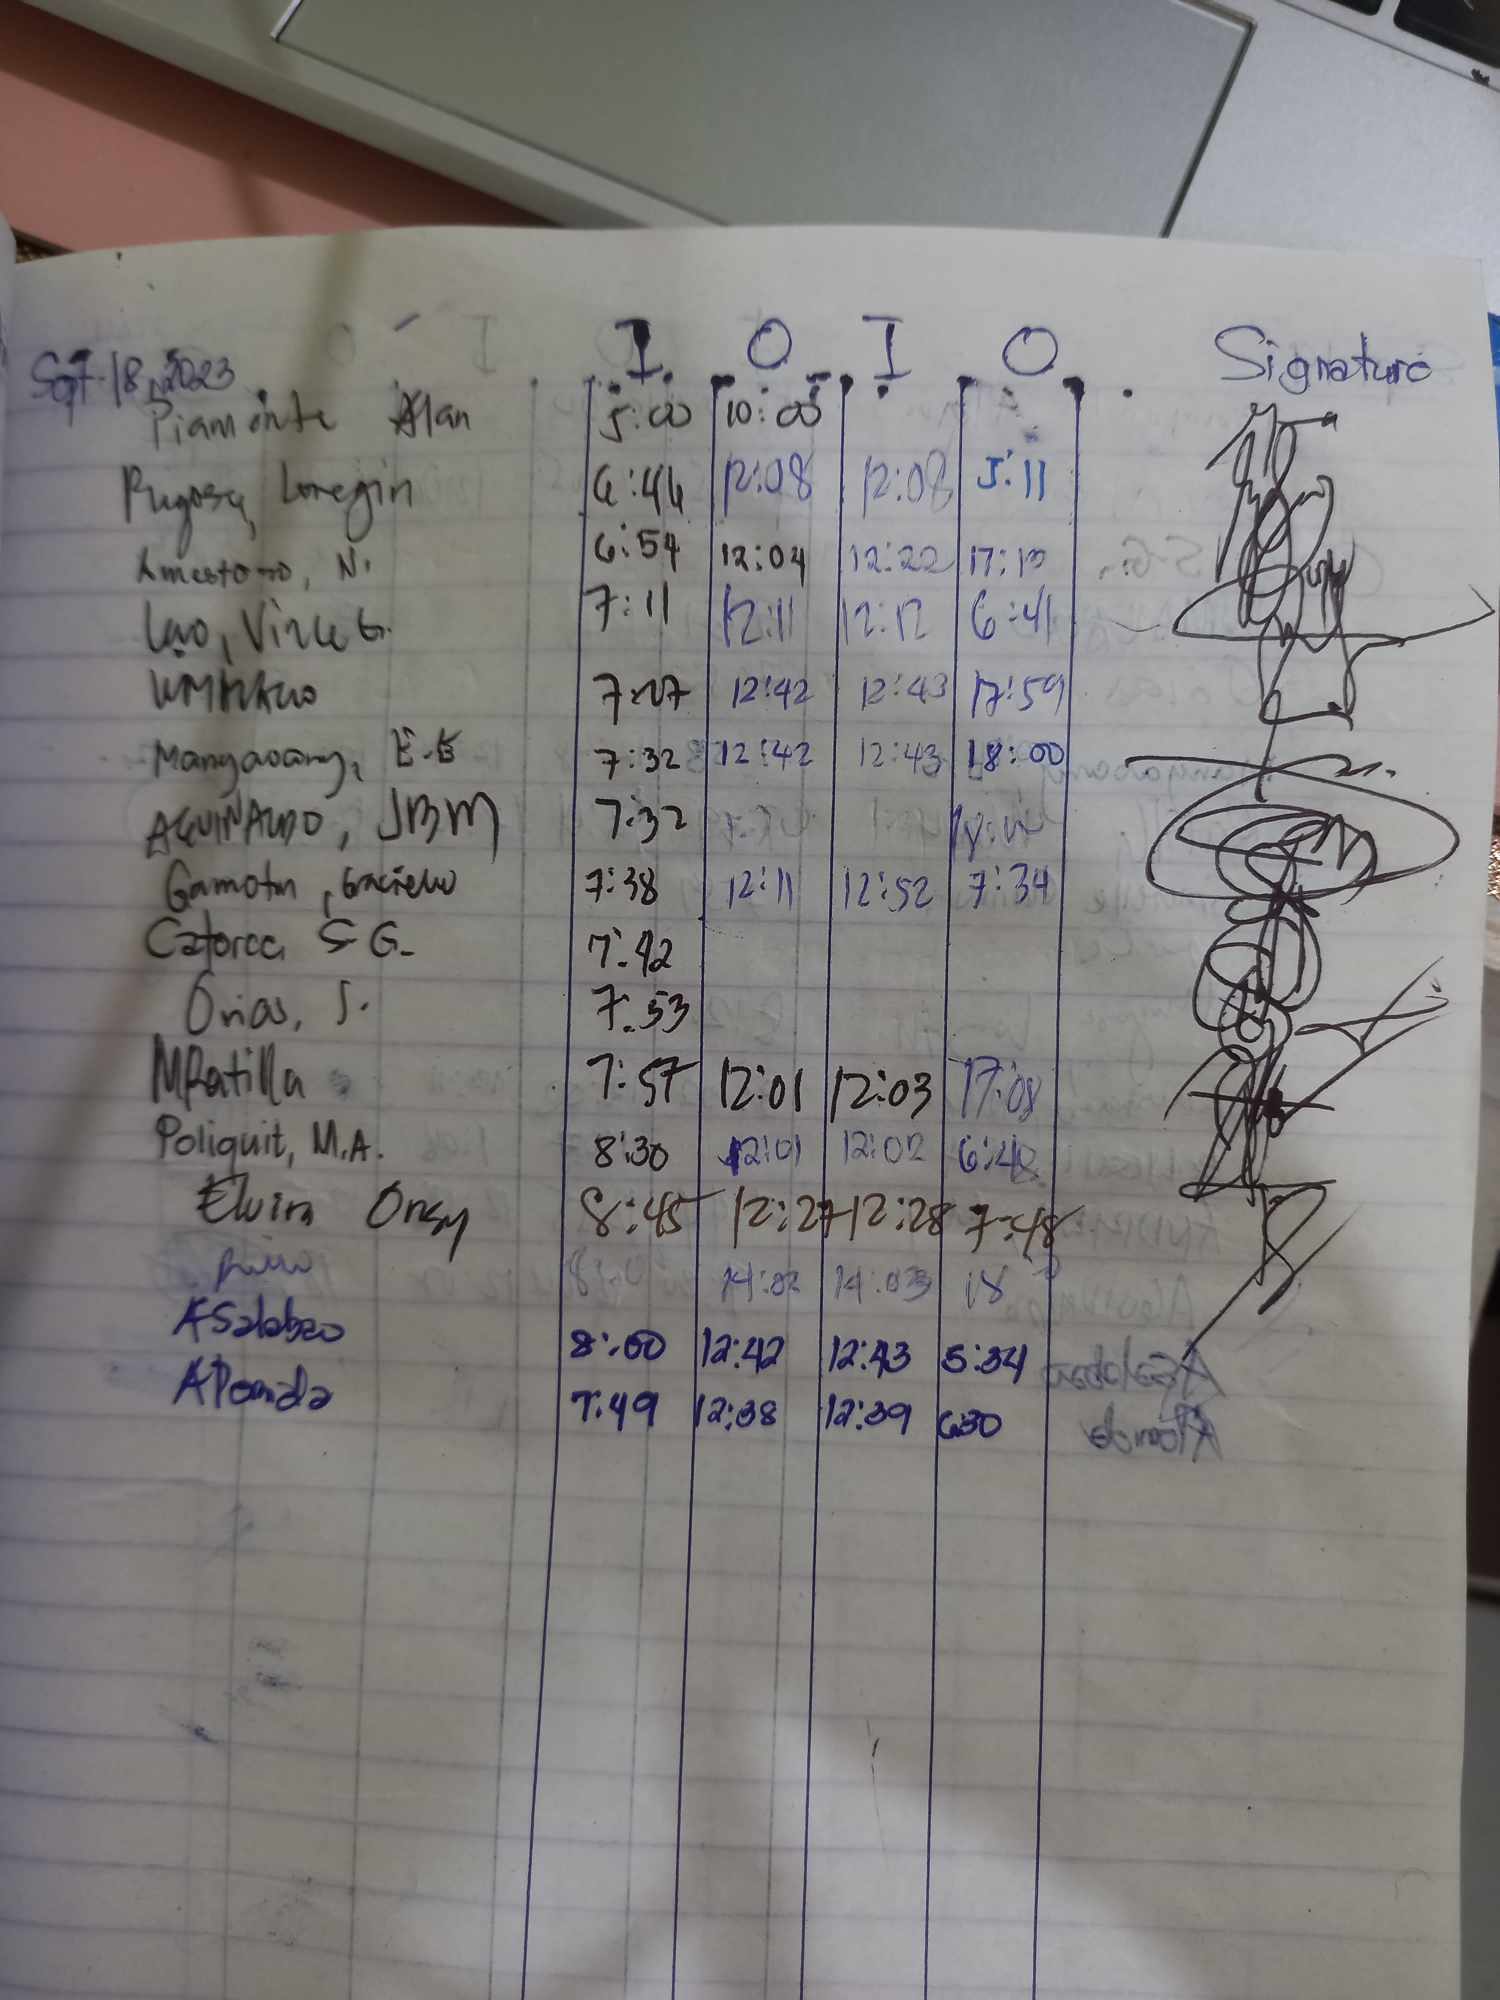 I O I O Signature
Sept. 18, 2023
Piamonte Alan 5:00 10:00
Pugosa, Loregin 6:44 12:08 12:08 5:11
Amestoso, N. 6:54 12:04 12:22 17:13
Lao, Vince G. 7:11 12:11 12:12 6:41
7:27 12:42 12:43 17:59
Mangaoang, E.E 7:32 12:42 12:43 18:00
AGUINALDO, JBM 7:32
Gamotin, 7:38 12:11 12:52 7:34
Catorce, S G. 7:42
Orias, J. 7:53
MRatilla 7:57 12:01 12:03 17:08
Poliquit, M.A. 8:30 12:01 12:02 6:48
Elvira Oray 8:45 12:27 12:28 7:48
14:02 14:03 18
ASalabao 8:00 12:42 12:43 5:34
APoanda 7:49 12:38 12:39 6:30